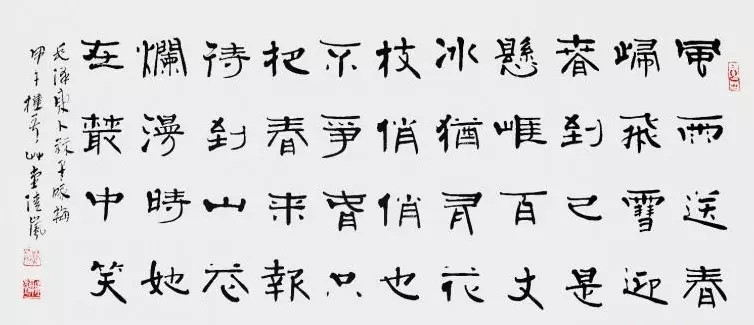 風雨送春
歸飛雪迎
春到已是
懸崖百丈
冰猶有花
枝俏俏也
不爭春只
把春來報
待到山花
爛漫時她
在叢中笑
毛澤東卜算子咏梅
甲子